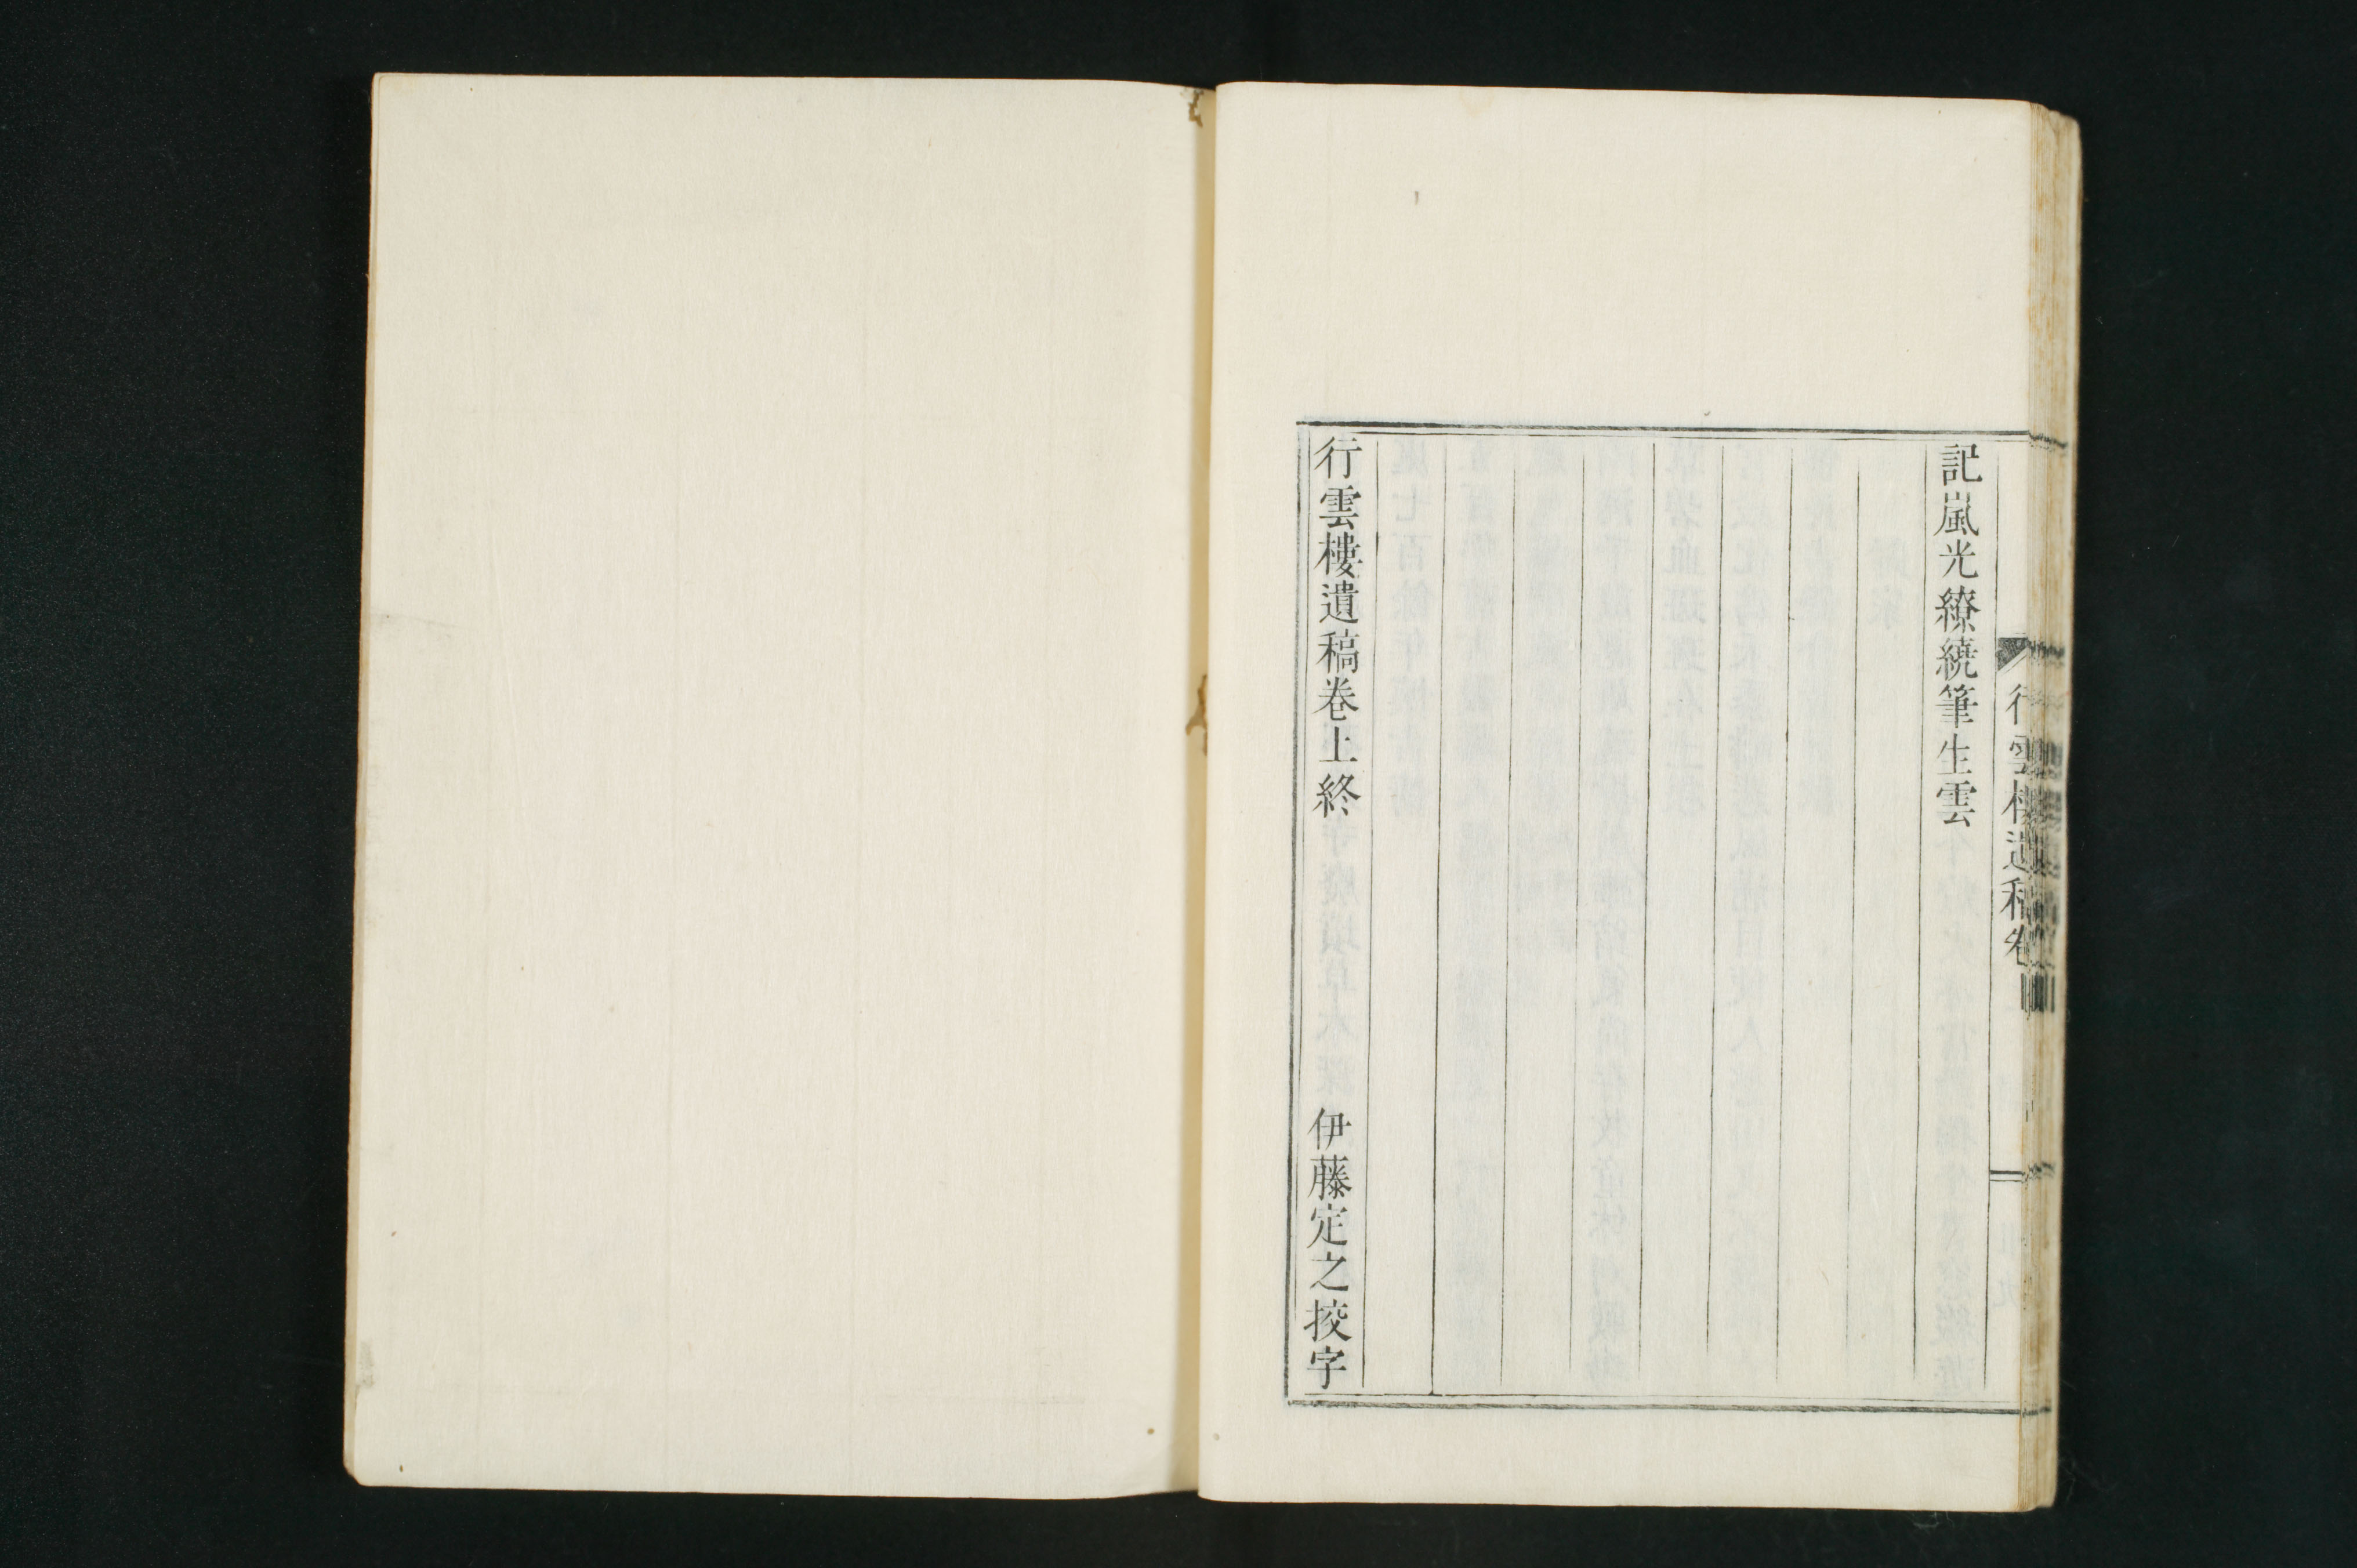 行雲樓遺稿卷
記嵐光繚繞筆生雲
行雲樓遺稿卷上終
伊藤定之挍字